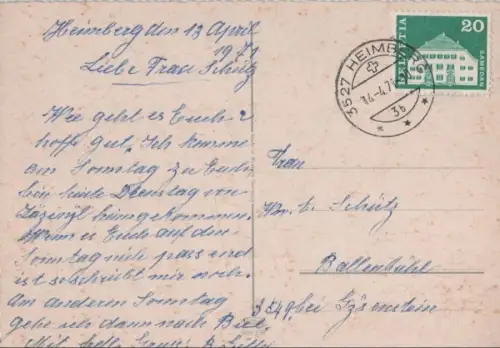 Heimberg den 13 April
1971
Liebe Frau Schütz
Wie geht es Euch?
hoffe gut. Ich komme
am Sonntag zu Euch
bin heute Dienstag von
Zäziwil heimgekommen.
Wenn es Euch auf den
Sonntag nich passend
ist so schreibt mir noch.
Am anderen Sonntag
gehe ich dann nach Biel.
Mit
HELVETIA
20
SAMEDAN
3527 HEIMBERG
14.-4.71
3b
Frau
E. Schütz
Ballenbühl
3549 bei Gysenstein